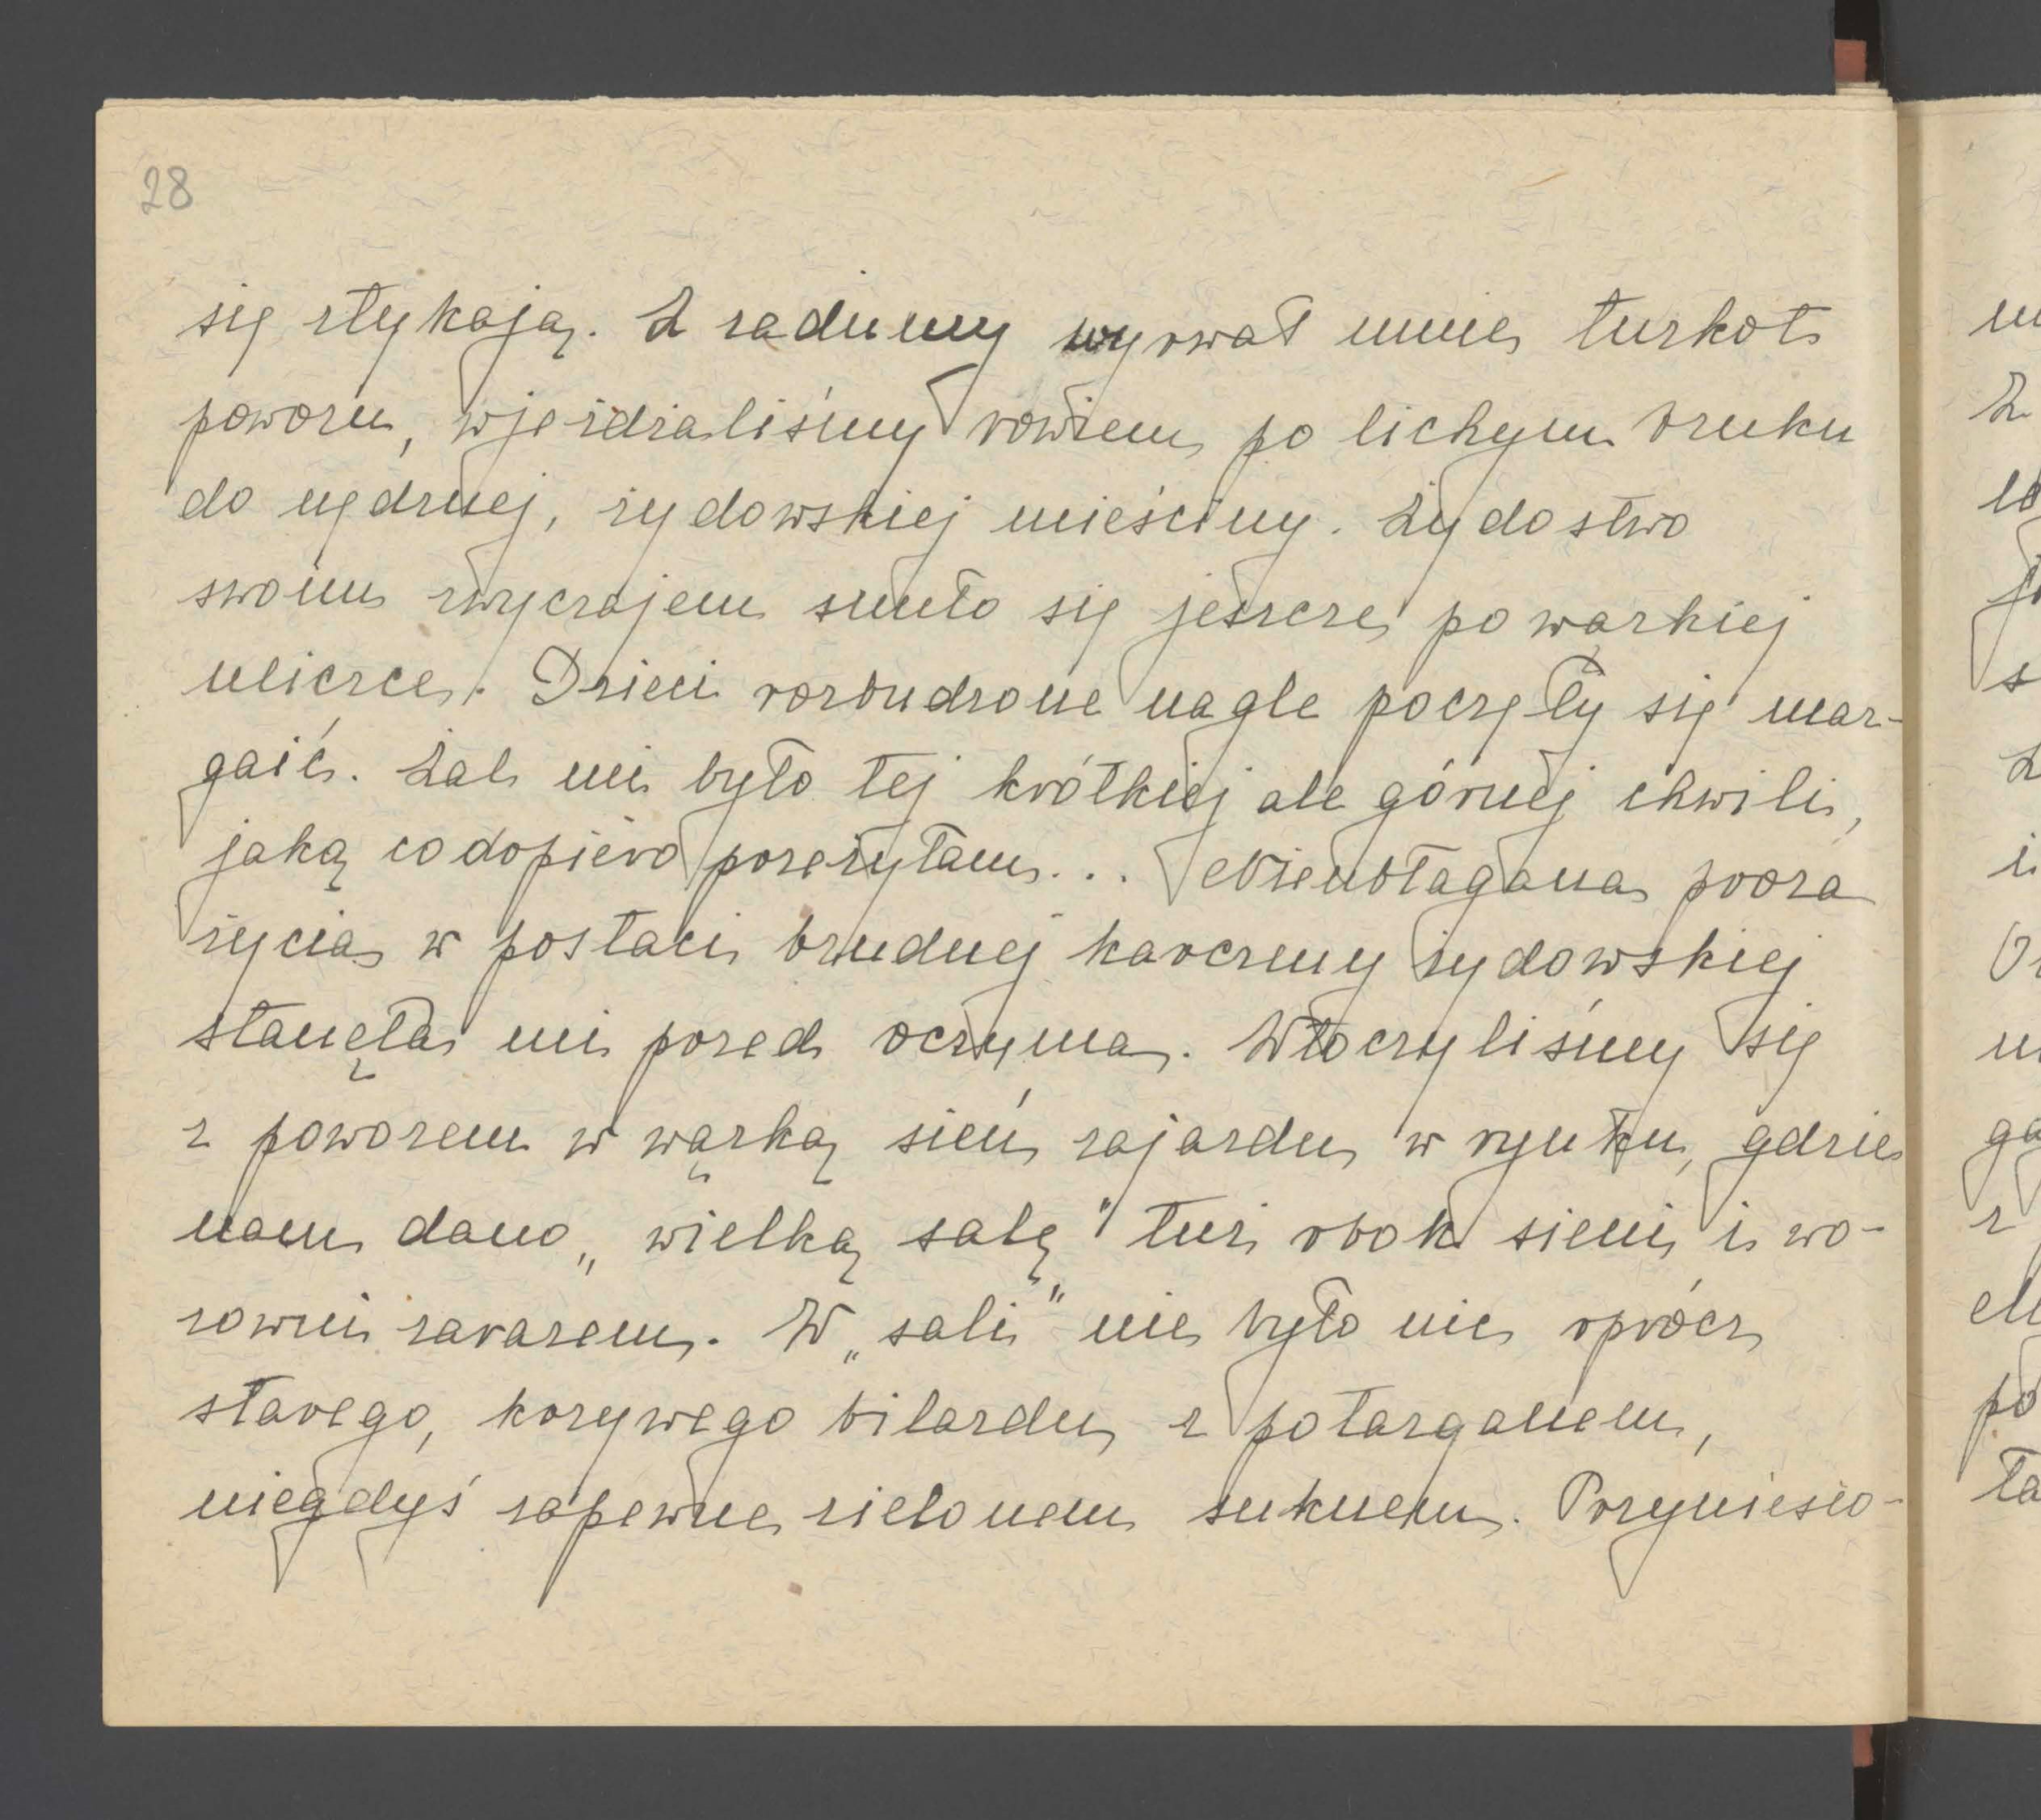 28
się stykają. Z zadumy wyrwał mnie turkot
powozu, wjeżdżaliśmy bowiem po lichym bruku
do nędznej, żydowskiej mieściny. Żydostwo
swoim zwyczajem snuło się jeszcze po wązkiej
uliczce. Dzieci rozbudzone nagle poczęły się maz-
gaić. Żal mi było tej krótkiej ale górnej chwili,
jaką codopiero przeżyłam... Nieubłagana proza
życia w postaci brudnej karczmy żydowskiej
stanęła mi przed oczyma. Wtoczyliśmy się
z powozem w wązką sień zajazdu w rynku, gdzie
nam dano „wielką salę" tuż obok sieni i wo-
zowni zarazem. W „sali" nie było nic oprócz
starego, krzywego bilardu z potarganem,
niegdyś zapewne zielonem suknem. Przyniesio-